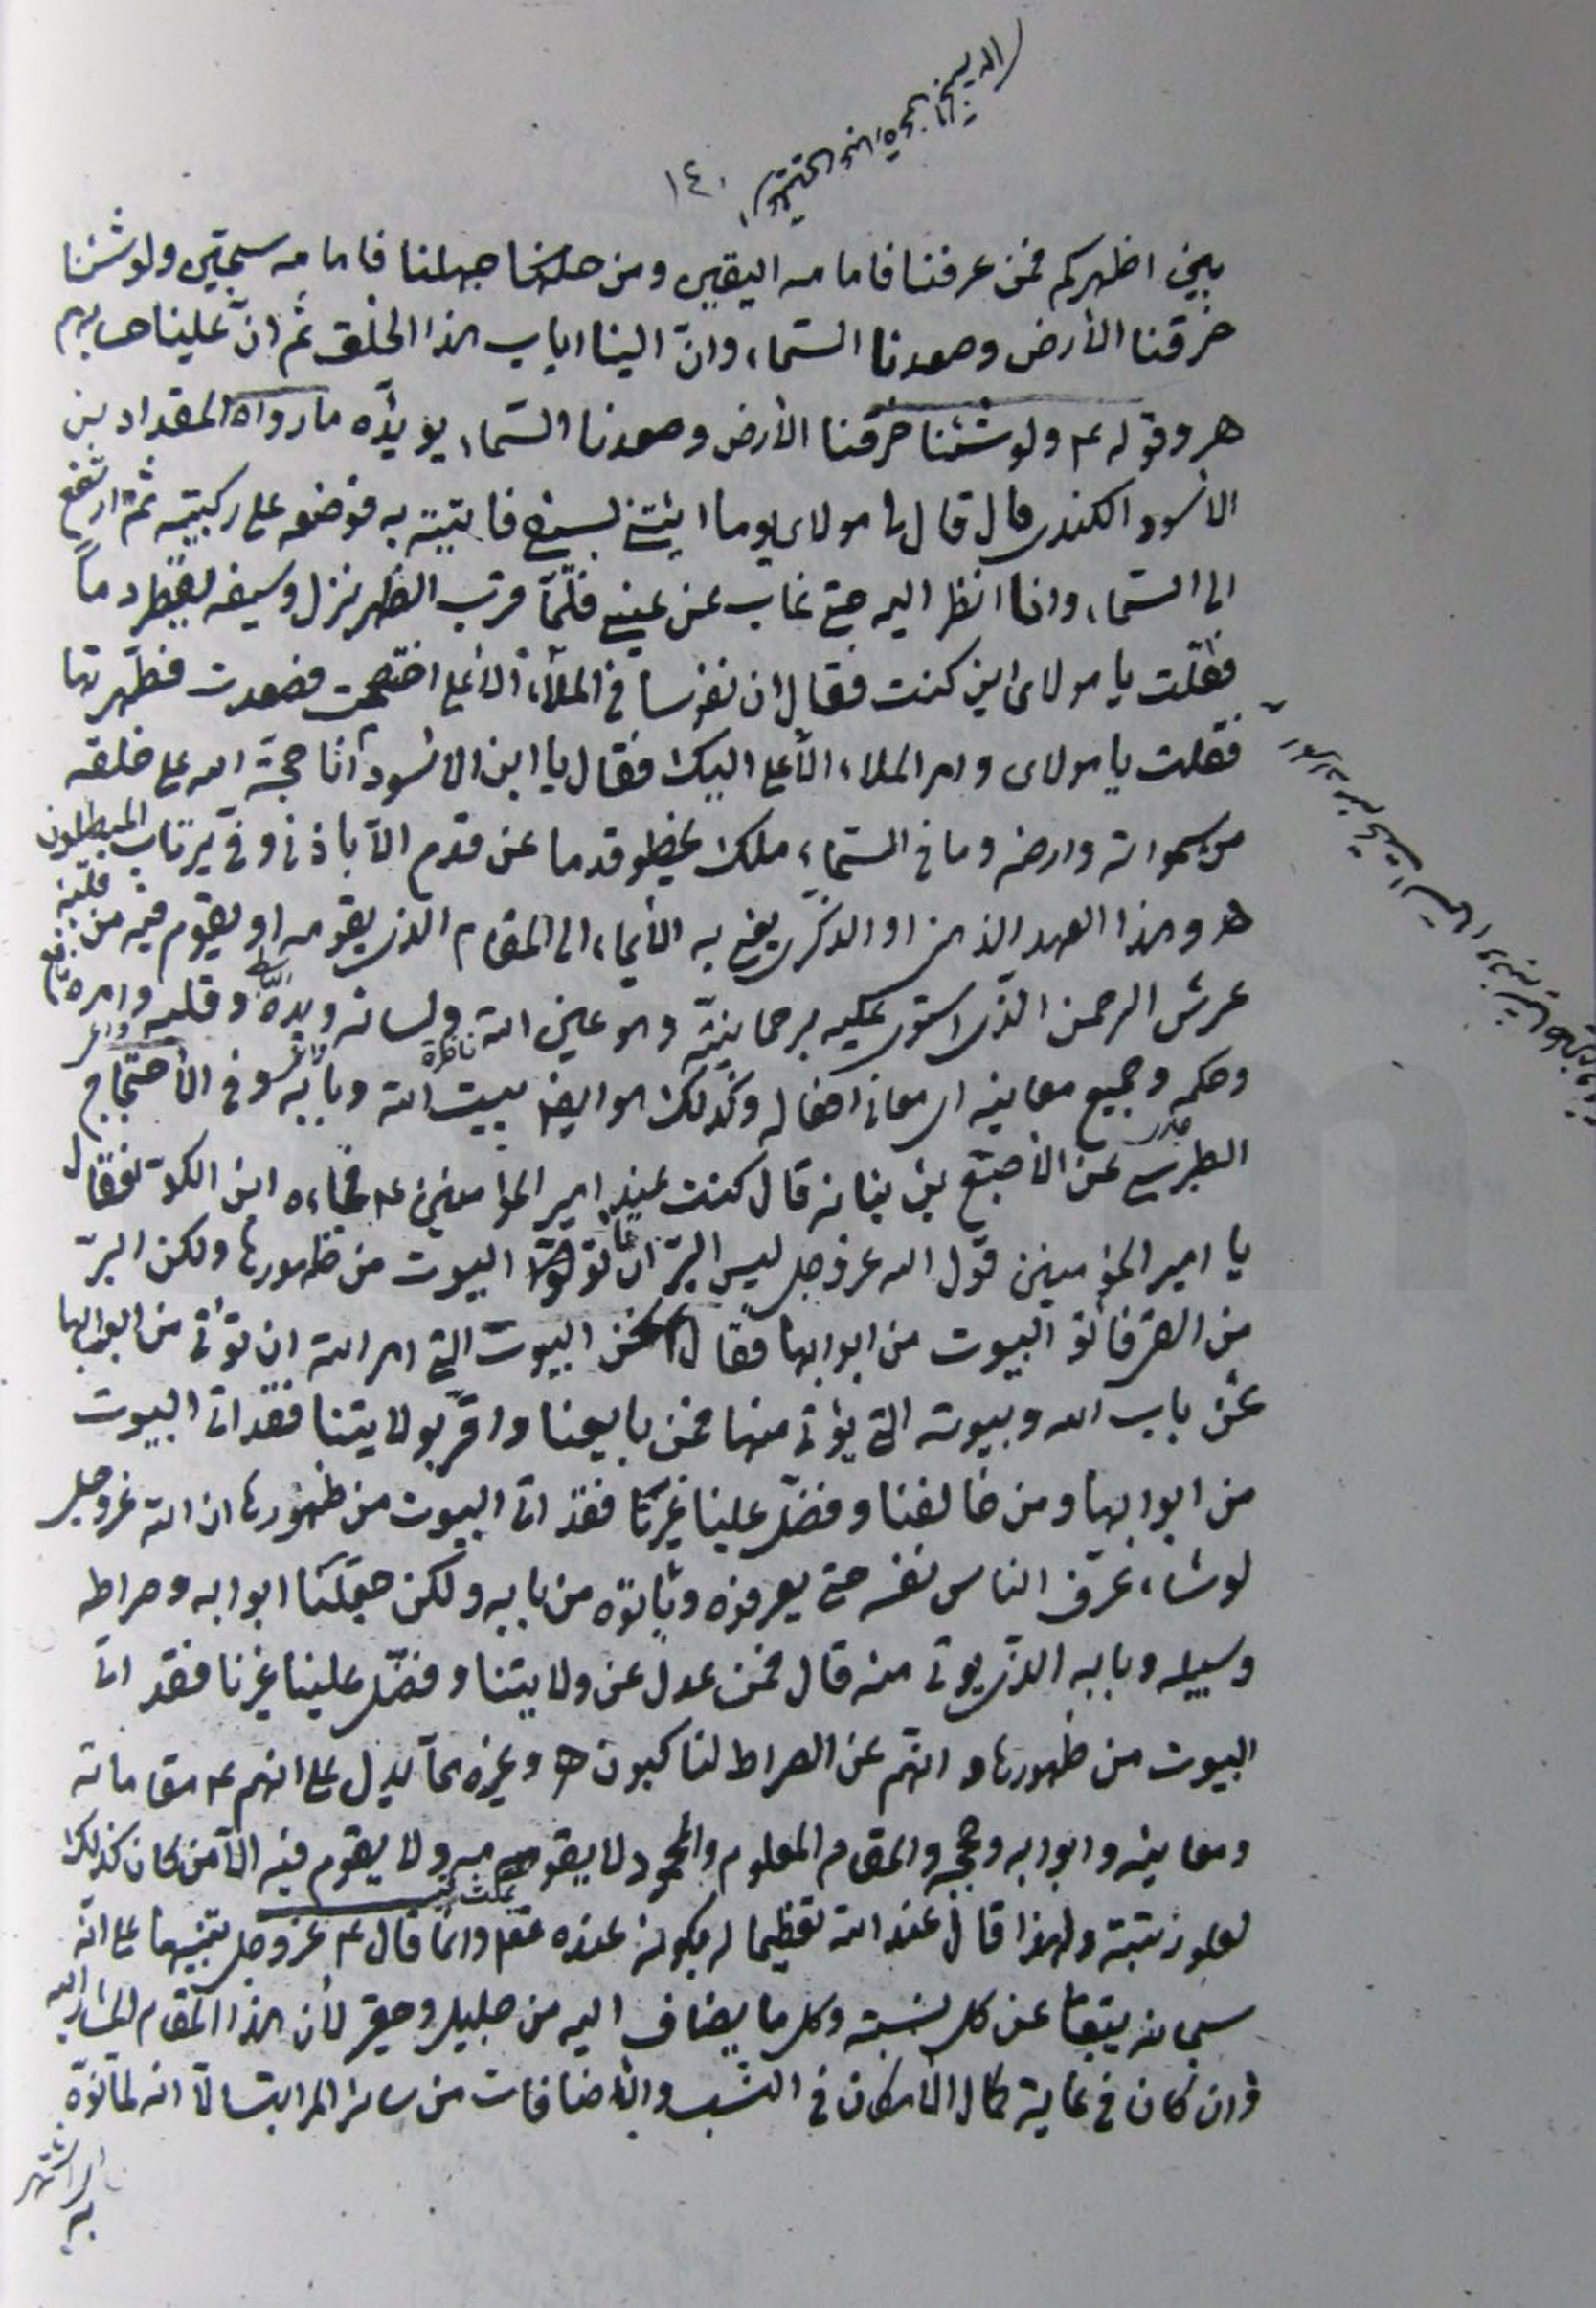 ١٤٠
بين اظهركم فمن عرفنا فامامه اليقين ومن جهلنا فامامه سجين ولو شئنا
خرقنا الأرض وصعدنا السّماء وانّ الينا اياب هذا الخلق ثم انّ علينا حسابهم
هـ وقوله ع ولو شئنا خرقنا الأرض وصعدنا السّماء يؤيّده ما رواه المقداد بن
الأسود الكندى قال قال لى مولاى يوما ايتنى بسيفى فاتيته به فوضعه على ركبتيه ثمّ ارتفع
الى السّماء وانا انظر اليه حتى غاب عن عينى فلمّا قرب الظهر نزل وسيفه يقطر دماً
فقلت يا مولاى اين كنت فقال ان نفوسا فى الملأ الأعلى اختصمت فصعدت فطهّرتها
فقلت يا مولاى وامر الملاء الأعلى اليك فقال يا ابن الأسود انا حجّة الله على خلقه
من سمواته وارضه وما فى السّماء ملك يخطو قدما عن قدم الّا باذنى وفىّ يرتاب المبطلون
هـ وهذا العهد الذى يعنى به الأيماء الى المقام الذى يقومه او يقوم فيه من قلبه
عرش الرحمن الذى استوى عليه برحمانيّته وهو عين الله ولسانه ويده وقلبه وامره
وحكمه وجميع معانيه اى معانى افعاله وكذلك هو ايضا بيت الله وبابه وفى الأحتجاج
الطبرسى عن الأصبغ بن نباته قال كنت عند امير المؤمنين ع فجاءه ابن الكوّا فقال
يا امير المؤمنين قول الله عزوجل ليس البرّ ان تأتوا البيوت من ظهورها ولكن البرّ
من اتقى فأتوا البيوت من ابوابها فقال نحن البيوت التى امر الله ان تؤتى من ابوابها
نحن باب الله وبيوته التى يؤتى منها فمن بايعنا واقرّ بولايتنا فقد اتى البيوت
من ابوابها ومن خالفنا وفضّل علينا غيرنا فقد اتى البيوت من ظهورها ان الله عزوجل
لو شاء عرّف الناس نفسه حتى يعرفوه ويأتوه من بابه ولكن جعلنا ابوابه وصراطه
وسبيله وبابه الذى يوتى منه قال فمن عدل عن ولايتنا وفضّل علينا غيرنا فقد اتى
البيوت من ظهورها وانّهم عن الصراط لناكبون هـ وغيره ممّا يدل على انهم ع مقاماته
ومعانيه وابوابه وحججه والمقام المعلوم والمحمود لا يقومه ولا يقوم فيه الّا من كان كذلك
لعلو رتبته ولهذا قال عند الله تعظيما له بكونه عنده وانّما قال ع عزوجل تنبيها على انّه
سبحانه يتعالى عن كل نسبة وكل ما يضاف اليه من جليل وحقير لأن هذا المقام المشار اليه
وان كان فى غاية كمال الأمكان فى النسب والأضافات من سائر المراتب الّا انه لما نوّه